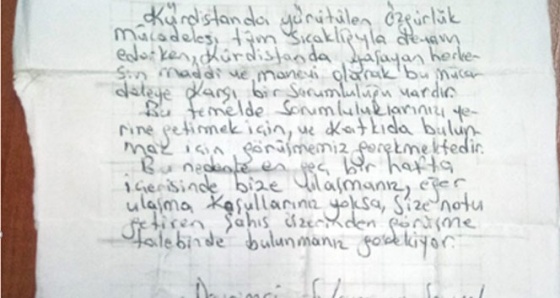 Kürdistanda yürütülen özgürlük
mücadelesi tüm sıcaklığıyla devam
ederken, Kürdistanda yaşayan herke-
sin maddi ve manevi olarak bu müca-
deleye karşı bir sorumluluğu vardır.
Bu temelde sorumluluklarınızı ye-
rine getirmek için, ve katkıda bulun-
maz için görüşmemiz gerekmektedir.
Bu nedenle en geç bir hafta
içerisinde bize ulaşmanız, eğer
ulaşma koşullarınız yoksa, size notu
getiren şahıs üzerinden görüşme
talebinde bulunmanız gerekiyor.